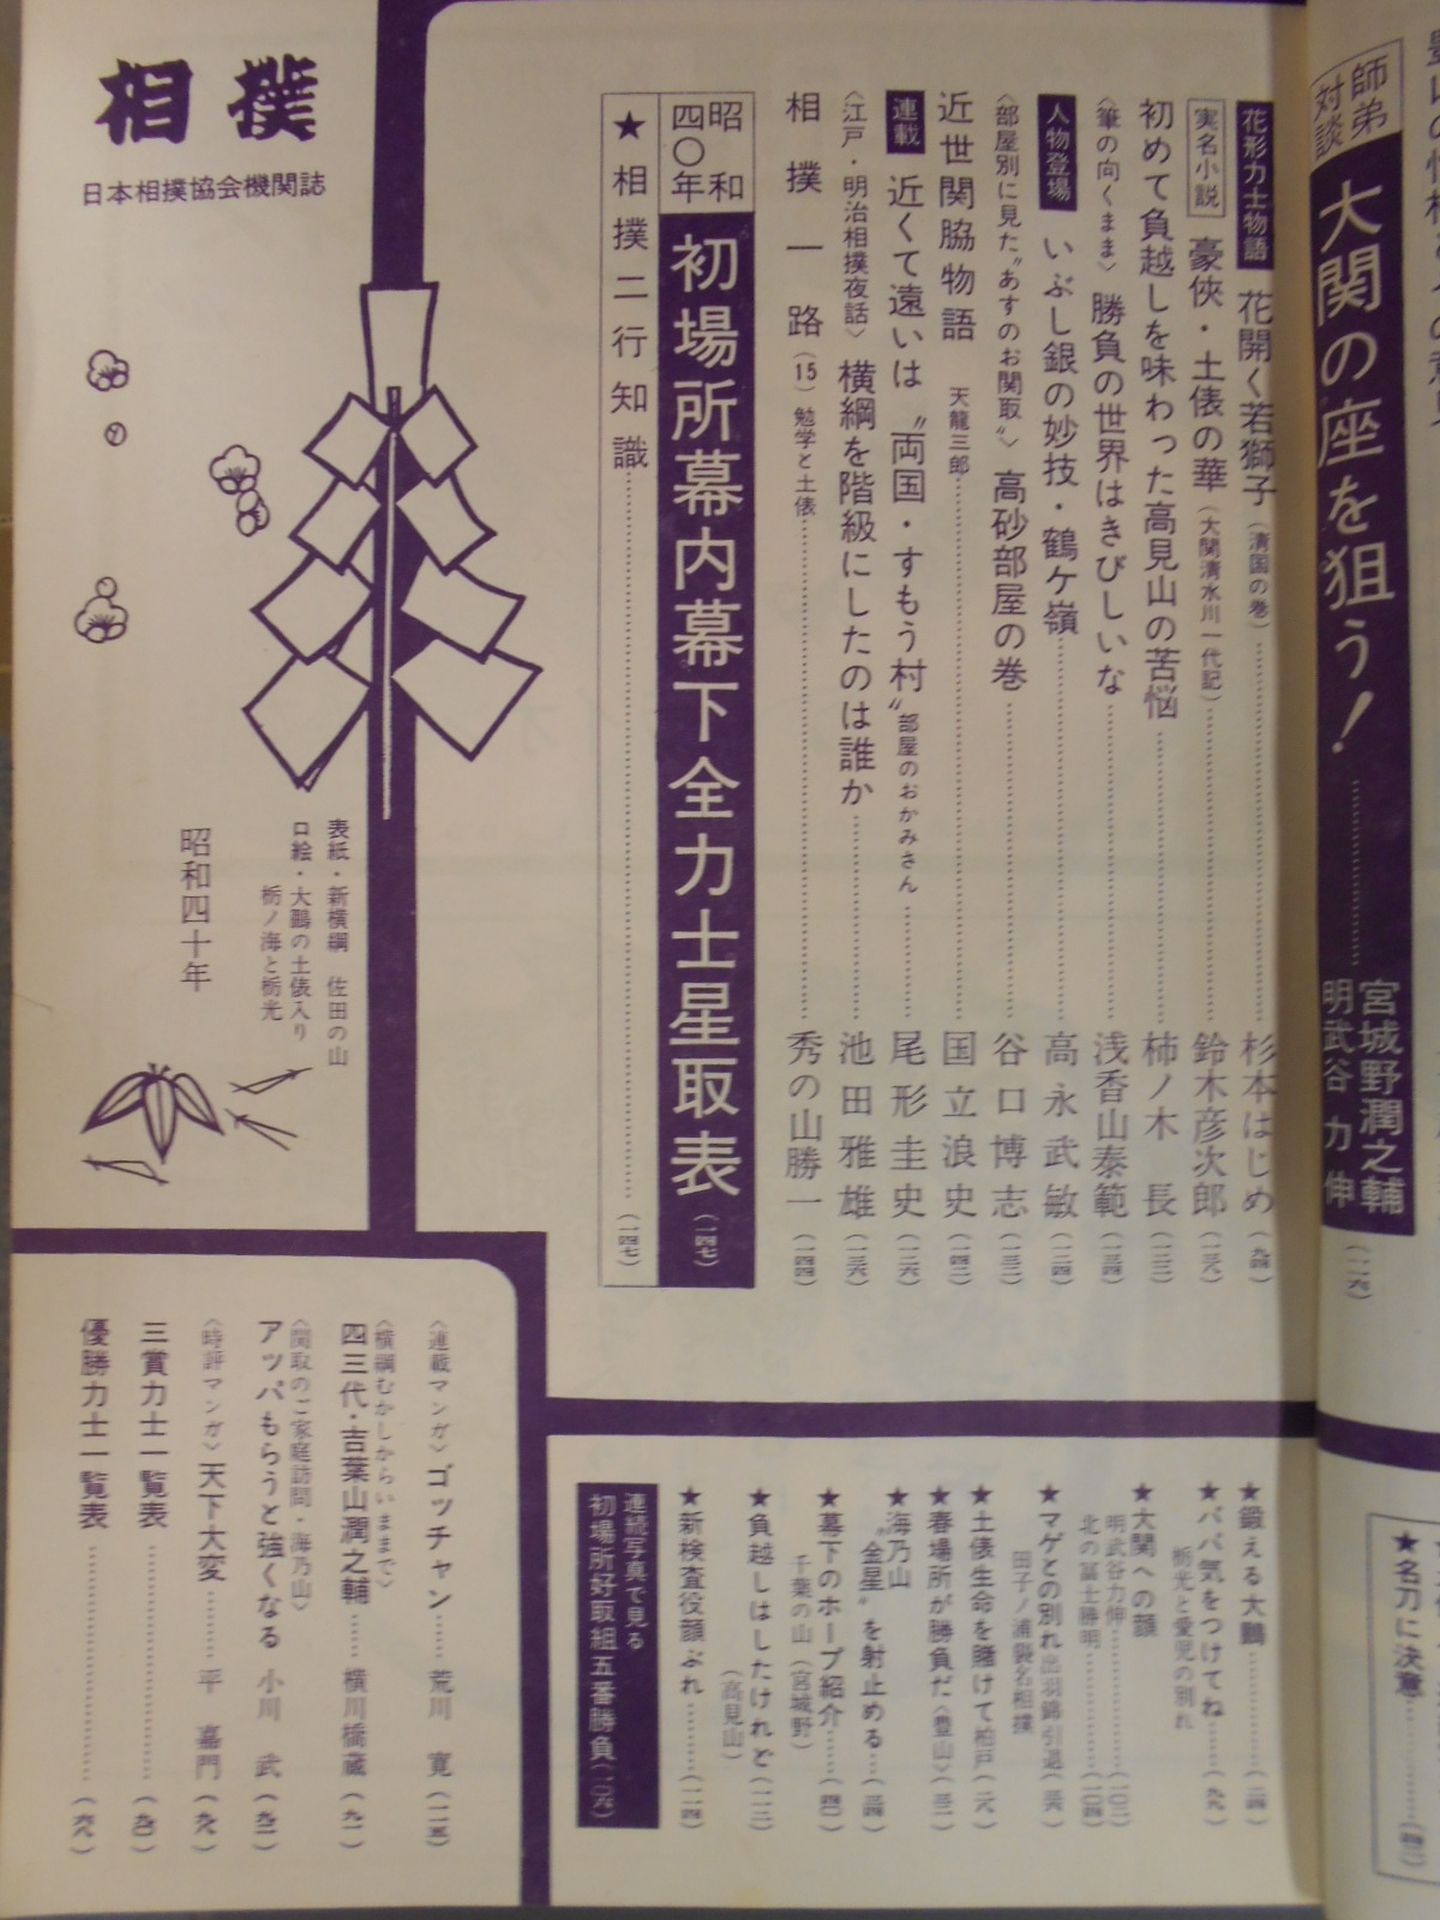 師弟対談 大関の座を狙う! 宮城野潤之輔 明武谷力伸
花形力士物語 花開く若獅子(清国の巻) 杉本はじめ(九四)
実名小説 豪俠・土俵の華(大関清水川一代記) 鈴木彦次郎(一三八)
初めて負越しを味わった高見山の苦悩 柿ノ木 長
〈筆の向くまま〉 勝負の世界はきびしいな 浅香山泰範
人物登場 いぶし銀の妙技・鶴ケ嶺 高永武敏
〈部屋別に見た〝あすのお関取〟〉 高砂部屋の巻 谷口博志
近世関脇物語 天龍三郎 国立浪史(一四二)
連載 近くて遠いは〝両国・すもう村〟部屋のおかみさん 尾形圭史
〈江戸・明治相撲夜話〉 横綱を階級にしたのは誰か 池田雅雄(一三六)
相撲一路(15)勉学と土俵 秀の山勝一(一四四)
昭和四〇年 初場所幕内幕下全力士星取表(一四七)
★相撲二行知識(一四七)
相撲
日本相撲協会機関誌
表紙・新横綱 佐田の山
口絵・大鵬の土俵入り
栃ノ海と栃光
昭和四十年
★名刀に決意
★鍛える大鵬
★パパ気をつけてね
栃光と愛児の別れ
★大関への顔
明武谷力伸(一〇二)
北の冨士勝明(一〇四)
★マゲとの別れ 出羽錦引退
田子ノ浦襲名相撲
★土俵生命を賭けて 柏戸
★春場所が勝負だ〈豊山〉
★海乃山
〝金星〟を射止める
★幕下のホープ紹介
千葉の山(宮城野)
★負越しはしたけれど
(高見山)
★新検査役顔ぶれ
連続写真で見る
初場所好取組五番勝負(一〇六)
〈連載マンガ〉ゴッチャン 荒川 寛
〈横綱むかしからいままで〉
四三代・吉葉山潤之輔 横川橋蔵
〈関取のご家庭訪問・海乃山〉
アッパもらうと強くなる 小川 武
〈時評マンガ〉天下大変 平 嘉門
三賞力士一覧表
優勝力士一覧表